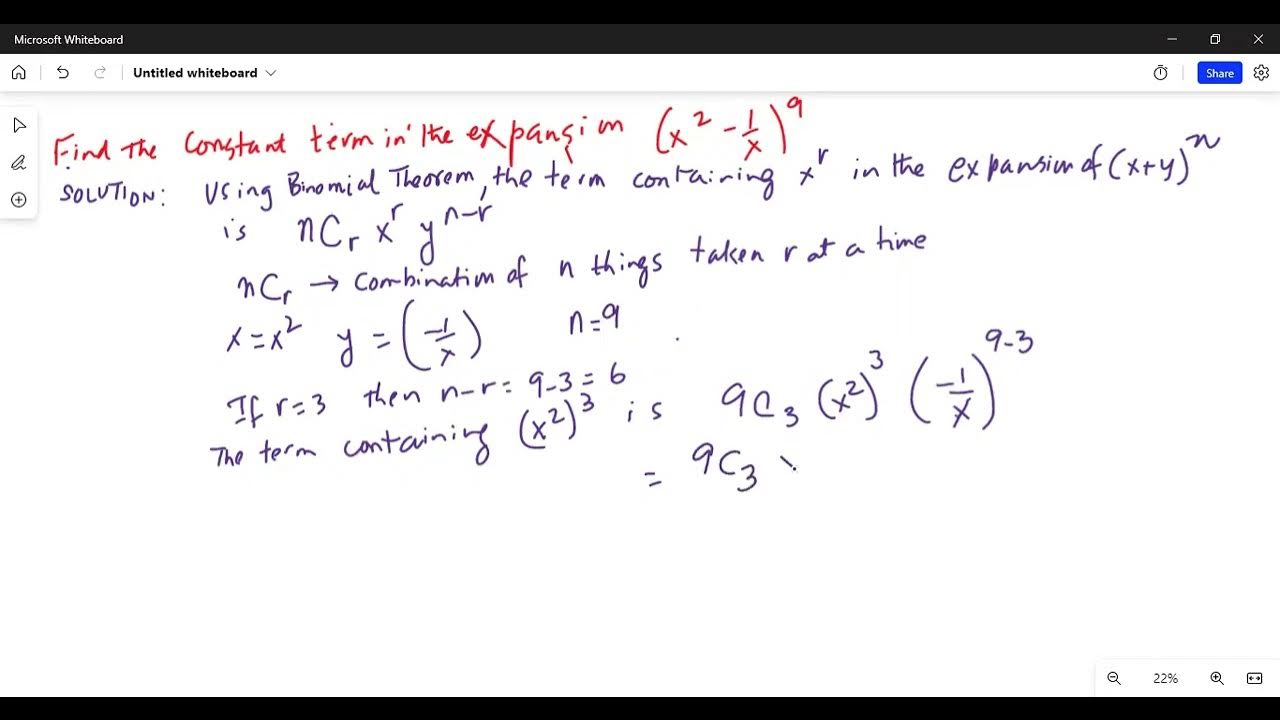 Microsoft Whiteboard
Untitled whiteboard
Share
Find the constant term in the expansion (x² - 1/x)⁹
SOLUTION: Using Binomial Theorem, the term containing xʳ in the expansion of (x+y)ⁿ
is nCᵣ xʳ yⁿ⁻ʳ
nCᵣ → Combination of n things taken r at a time
x = x² y = (-1/x) n=9
If r=3 then n-r = 9-3 = 6
The term containing (x²)³ is 9C₃ (x²)³ (-1/x)⁹⁻³
= 9C₃
22%